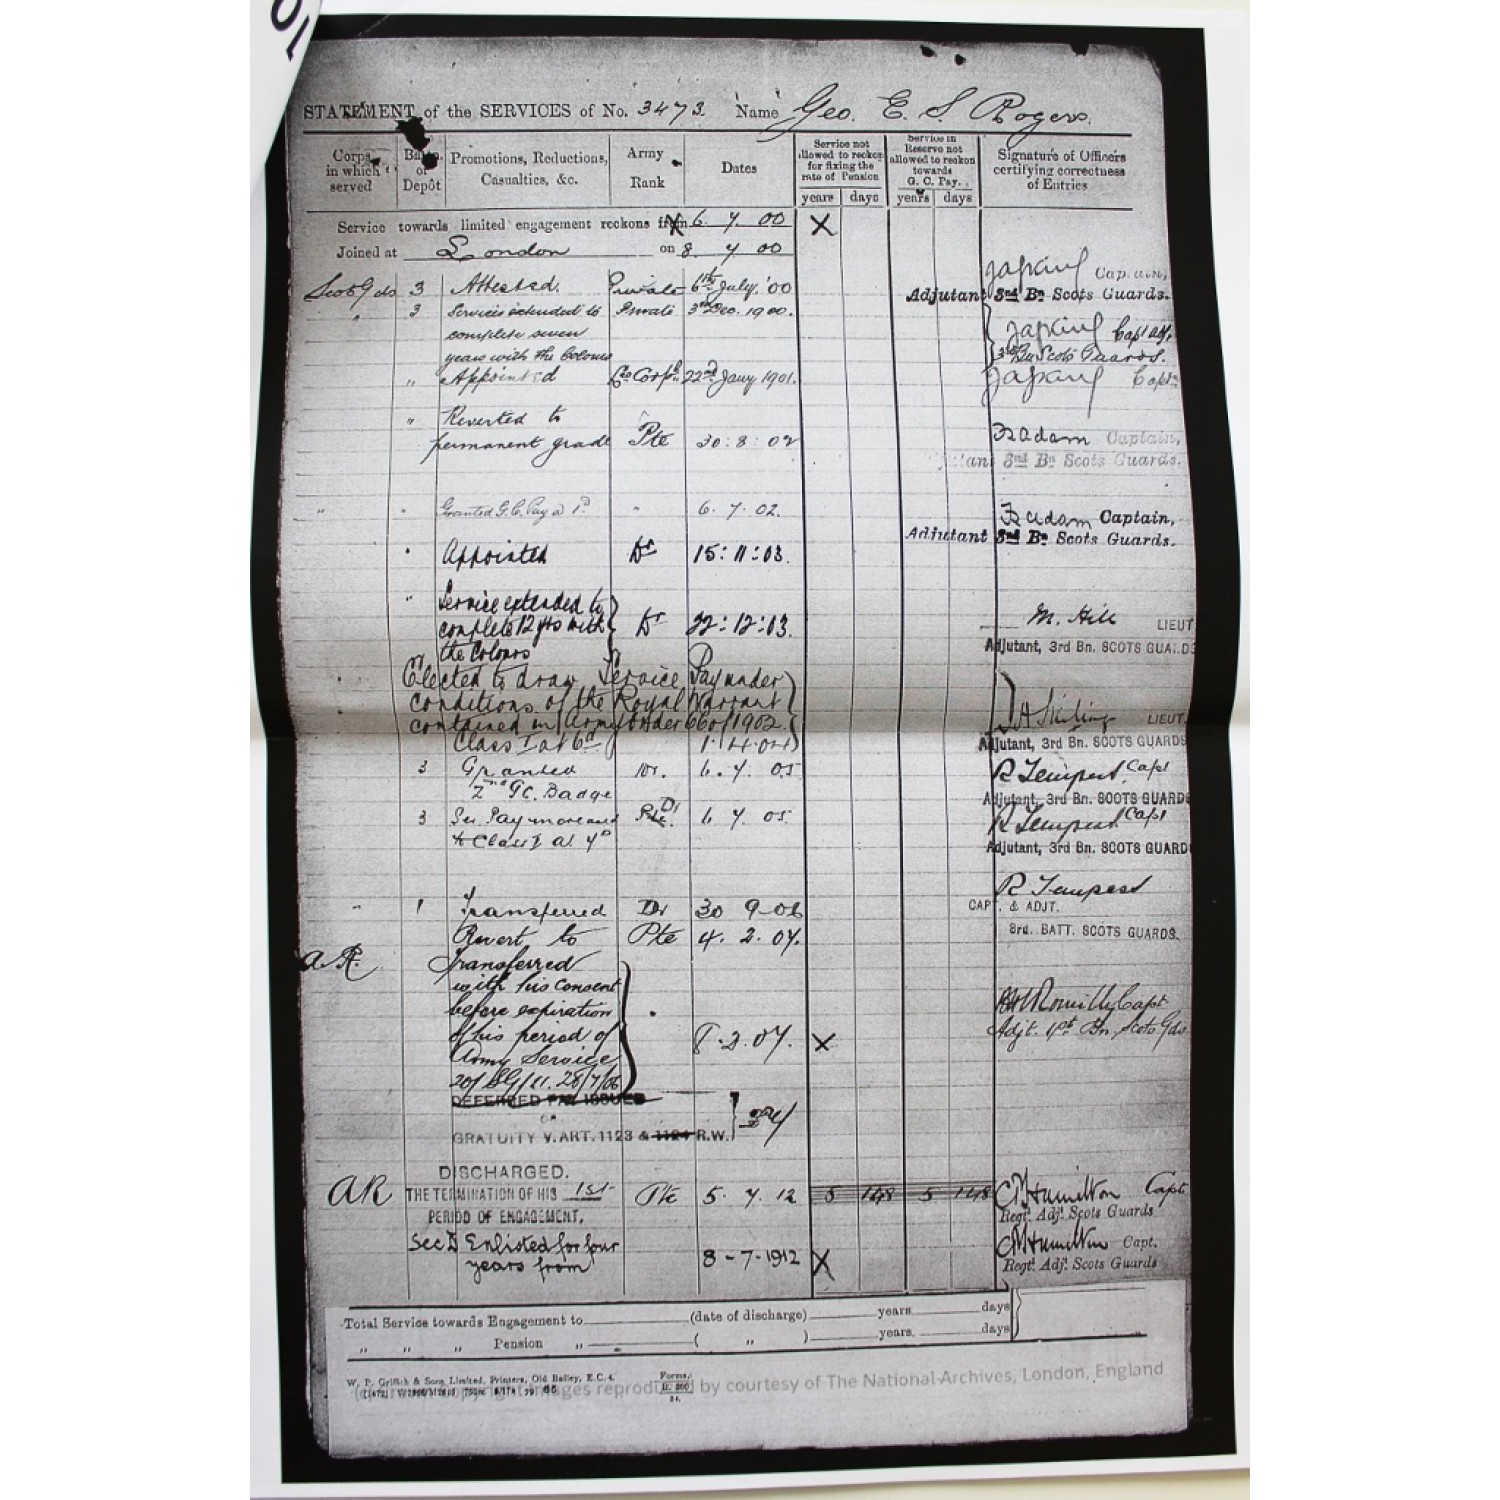 STATEMENT of the SERVICES of No. 3473. Name Geo. E. S. Rogers.
Corps in which served
Battn. or Depôt
Promotions, Reductions, Casualties, &c.
Army Rank
Dates
Service not allowed to reckon for fixing the rate of Pension
years days
Service in Reserve not allowed to reckon towards G. C. Pay.
years days
Signature of Officers certifying correctness of Entries
Service towards limited engagement reckons from 6. 7. 00 X
Joined at London on 8. 7 00
Scots Gds 3 Attested. Private 6th July, '00 Captain,
Adjutant 3rd Bn Scots Guards.
" 3 Services extended to Private 3rd Dec. 1900.
complete seven Capt Adj,
years with the Colours 3rd Bn Scots Guards.
" Appointed Lce Corpl 22nd Jany 1901. Captn
" Reverted to
permanent grade Pte 30:8:02 Captain,
3rd Bn Scots Guards.
" " Granted G.C. Pay a 1d " 6. 7. 02. Captain,
Adjutant 3rd Bn Scots Guards.
" Appointed Dr 15:11:03.
" Service extended to
complete 12 yrs with Dr 22:12:03. M. Hill LIEUT
the Colours Adjutant, 3rd Bn. SCOTS GUARDS
Elected to draw Service Pay under
conditions of the Royal Warrant
contained in Army Order 66 of 1902 LIEUT.
Class I at 6d 1.4.04 Adjutant, 3rd Bn. SCOTS GUARDS
3 Granted Dr. 6. 7. 05 R Tempest, Capt
2nd GC. Badge Adjutant, 3rd Bn. SCOTS GUARDS
3 Ser. Pay Pte. Dr 6 7. 05. R Tempest Capt
Class I at 7d Adjutant, 3rd Bn. SCOTS GUARD
R Tempest
" 1 Transferred Dr 30 9-06 CAPT. & ADJT.
Revert to Pte 4. 2. 07. 3rd. BATT. SCOTS GUARDS.
A R. Transferred
with his consent
before expiration Capt
of his period of 8.2.07. X Adjt. 1st Bn. Scots Gds
Army Service
20/SG/11. 28/7/06
DEFERRED PAY ISSUED
OR
GRATUITY V. ART. 1123 & 1124 R.W.
DISCHARGED.
AR THE TERMINATION OF HIS 1st Pte 5. 7. 12 5 148 5 148 Hamilton Capt
PERIOD OF ENGAGEMENT. Regtl. Adjt. Scots Guards
Sec D Enlisted for four Hamilton Capt.
years from 8-7-1912 X Regtl. Adjt. Scots Guards
Total Service towards Engagement to (date of discharge) years days
" " " Pension " ( " ) years. days
W. P. Griffith & Sons Limited, Printers, Old Bailey, E.C.4.
Forms,
images reproduced by courtesy of The National Archives, London, England